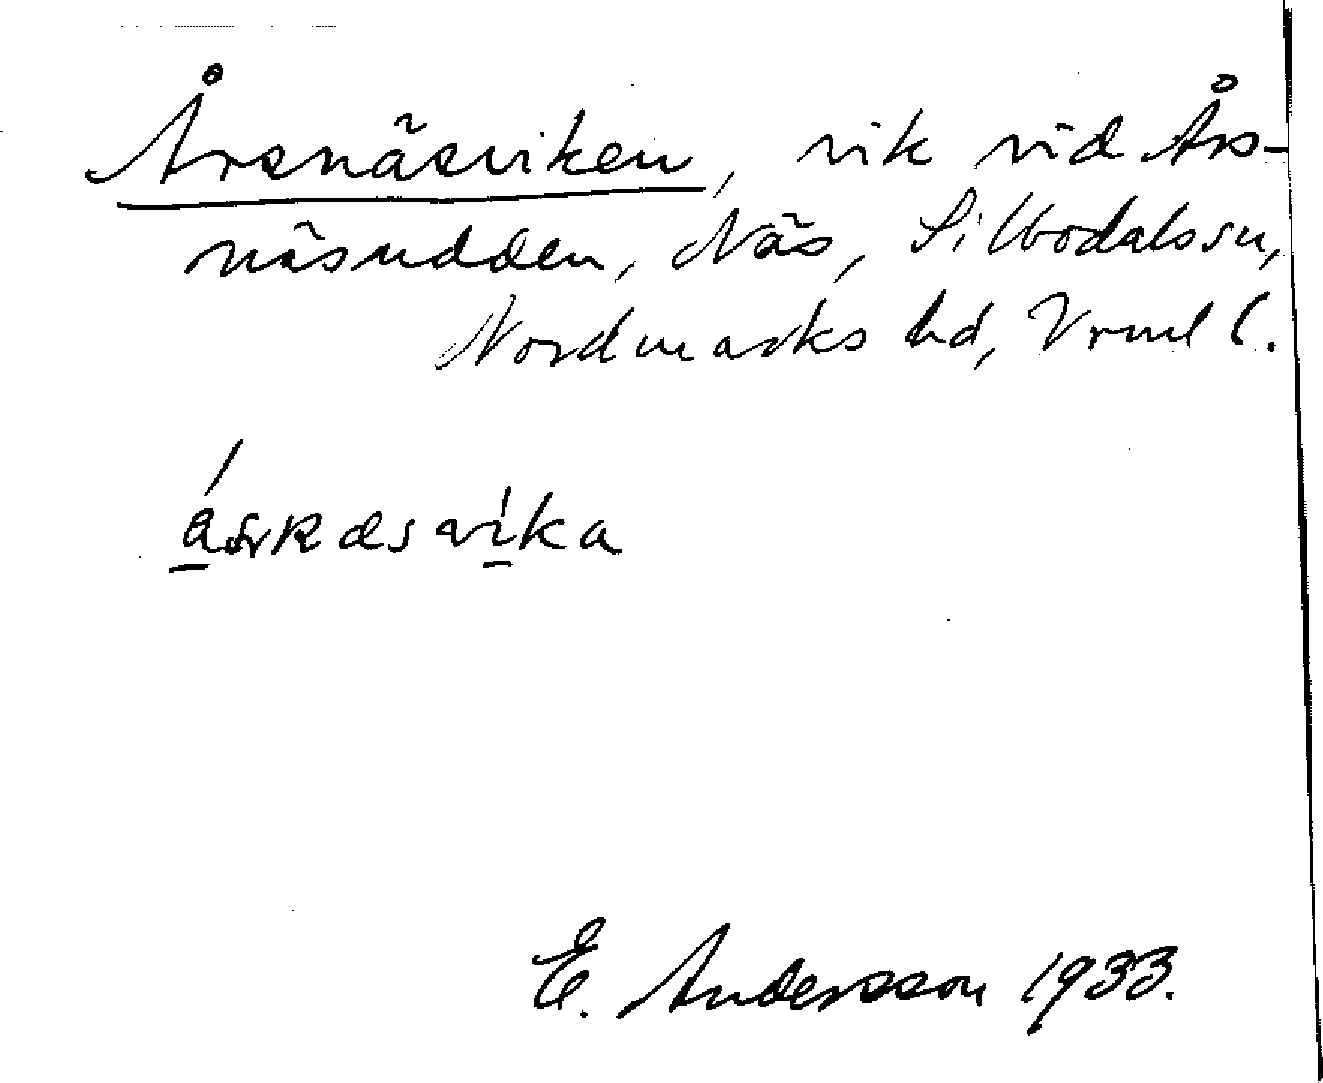 Årsnäsviken, vik vid Års-
näsudden, Näs, Silbodalssn,
Nordmarks hd, Vrml l.
E. Andersson 1933.